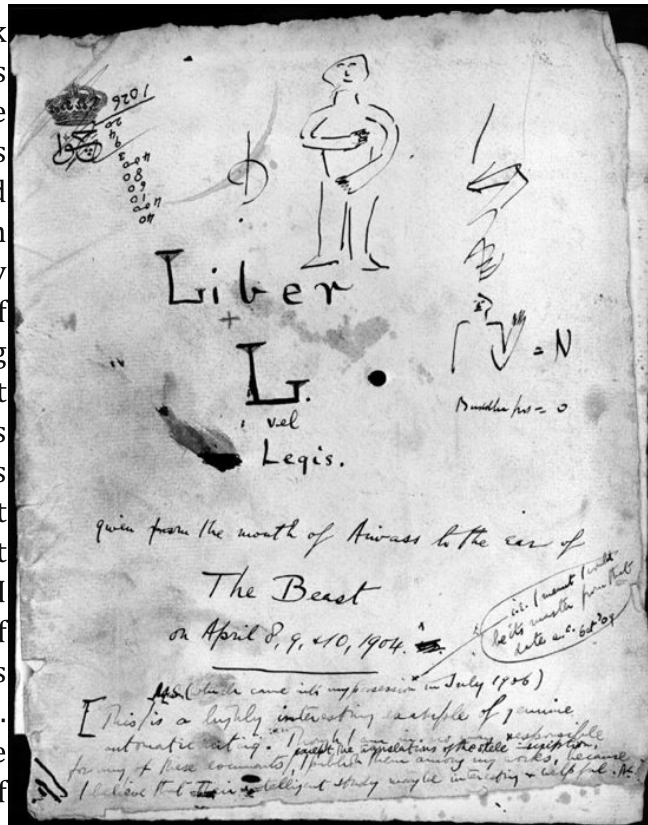 1026
Liber
L.
vel
Legis.
= N
Buddha = 0
given from the mouth of Aiwass to the ear of
The Beast
on April 8, 9, & 10, 1904.
i.e. I meant I would
be its master from that
date Oct 09
MS (which came into my possession in July 1906)
[This is a highly interesting example of genuine
automatic writing. Though I am in no way responsible
except the translations of the stele inscription,
for any of these documents, I publish them among my works, because
I believe that their intelligent study may be interesting & helpful.